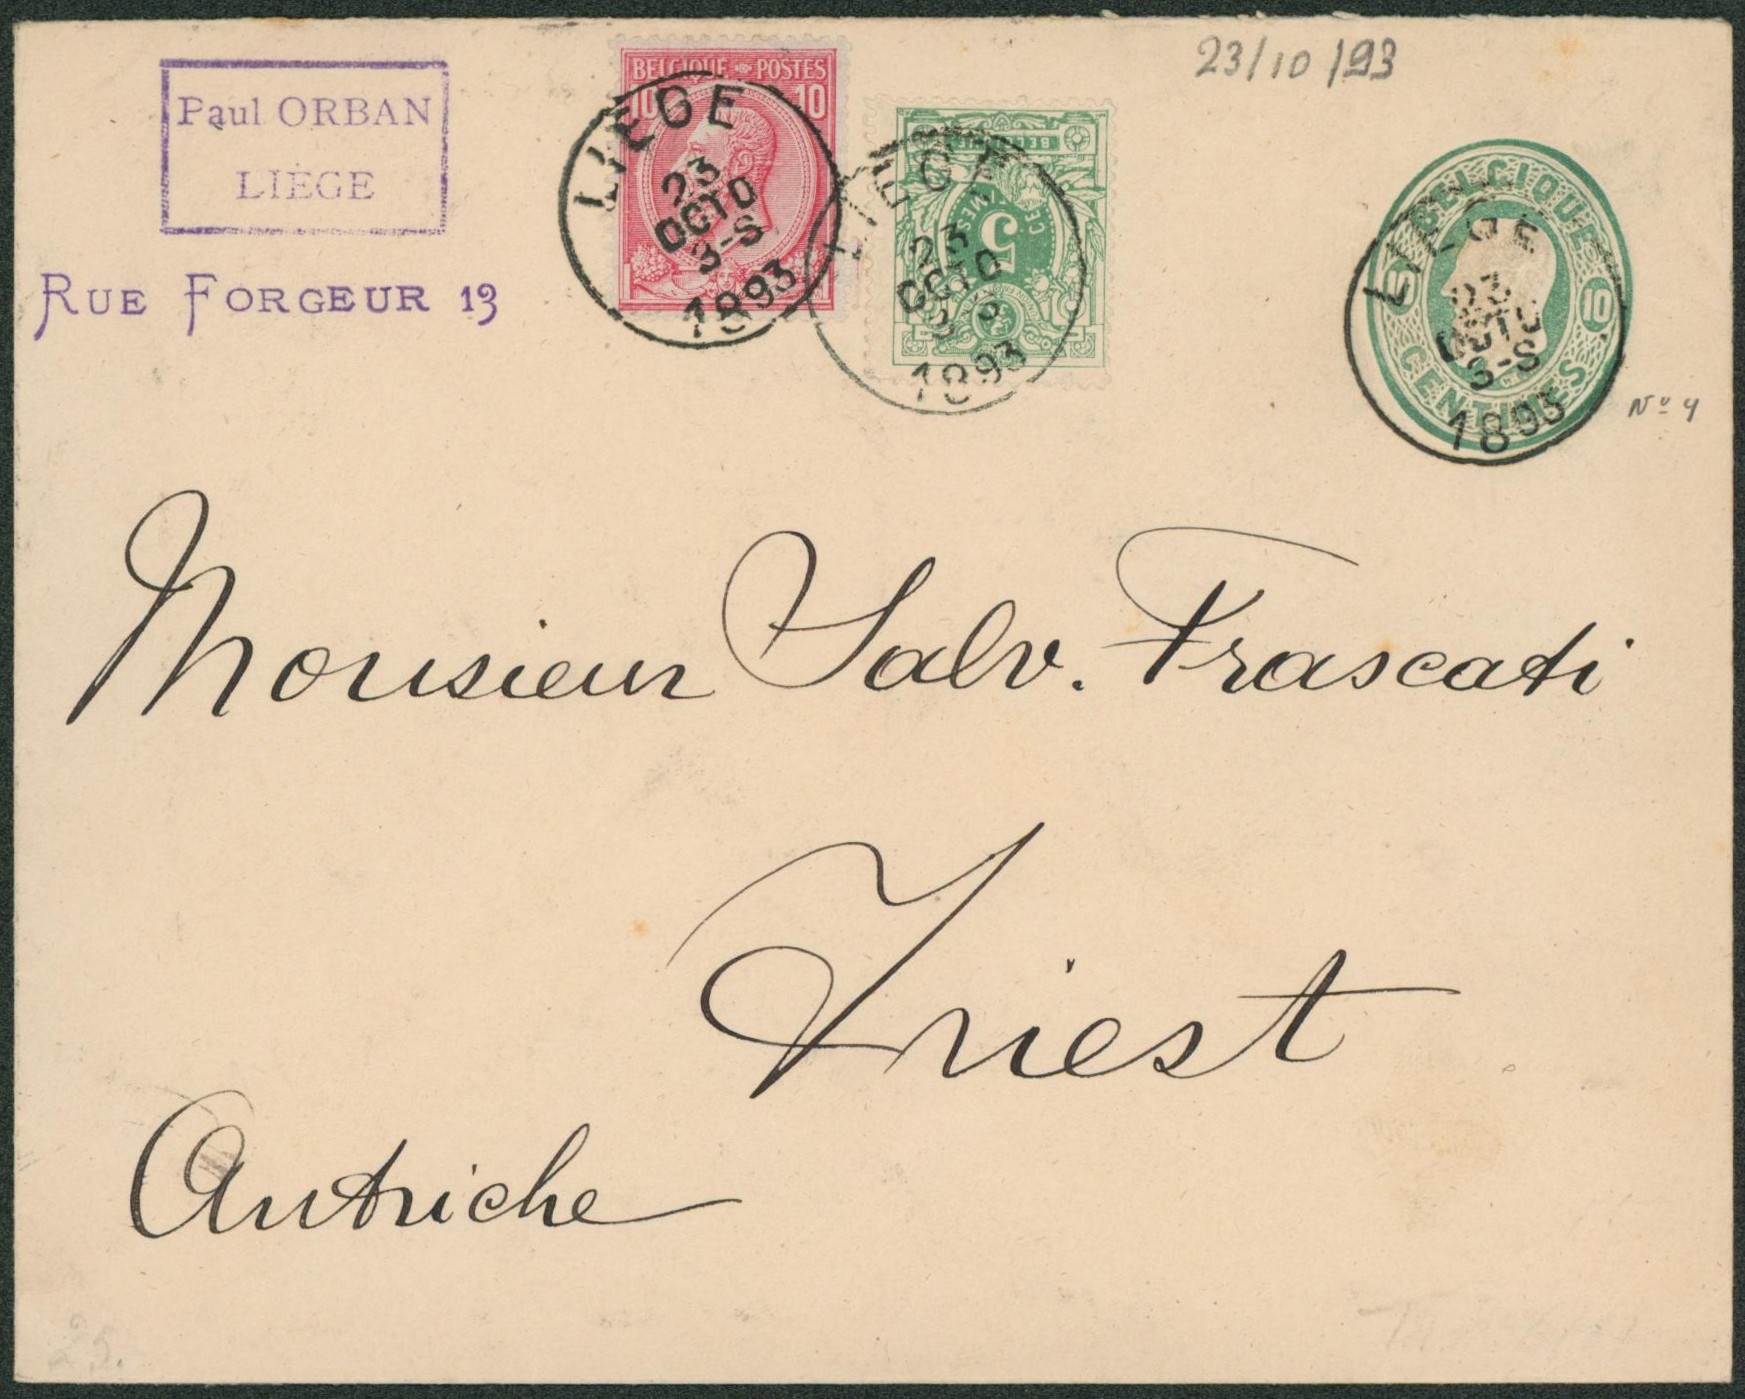 23/10/93
Paul ORBAN
LIÉGE
RUE FORGEUR 13
BELGIQUE POSTES
10 10
LIEGE
23
OCTO
3-S
1893
5
LIEGE
23
OCTO
1893
BELGIQUE
10
CENTIMES
LIEGE
23
OCTO
3-S
1893
No 4
Monsieur Salv. Frascati
Triest
Autriche
25.